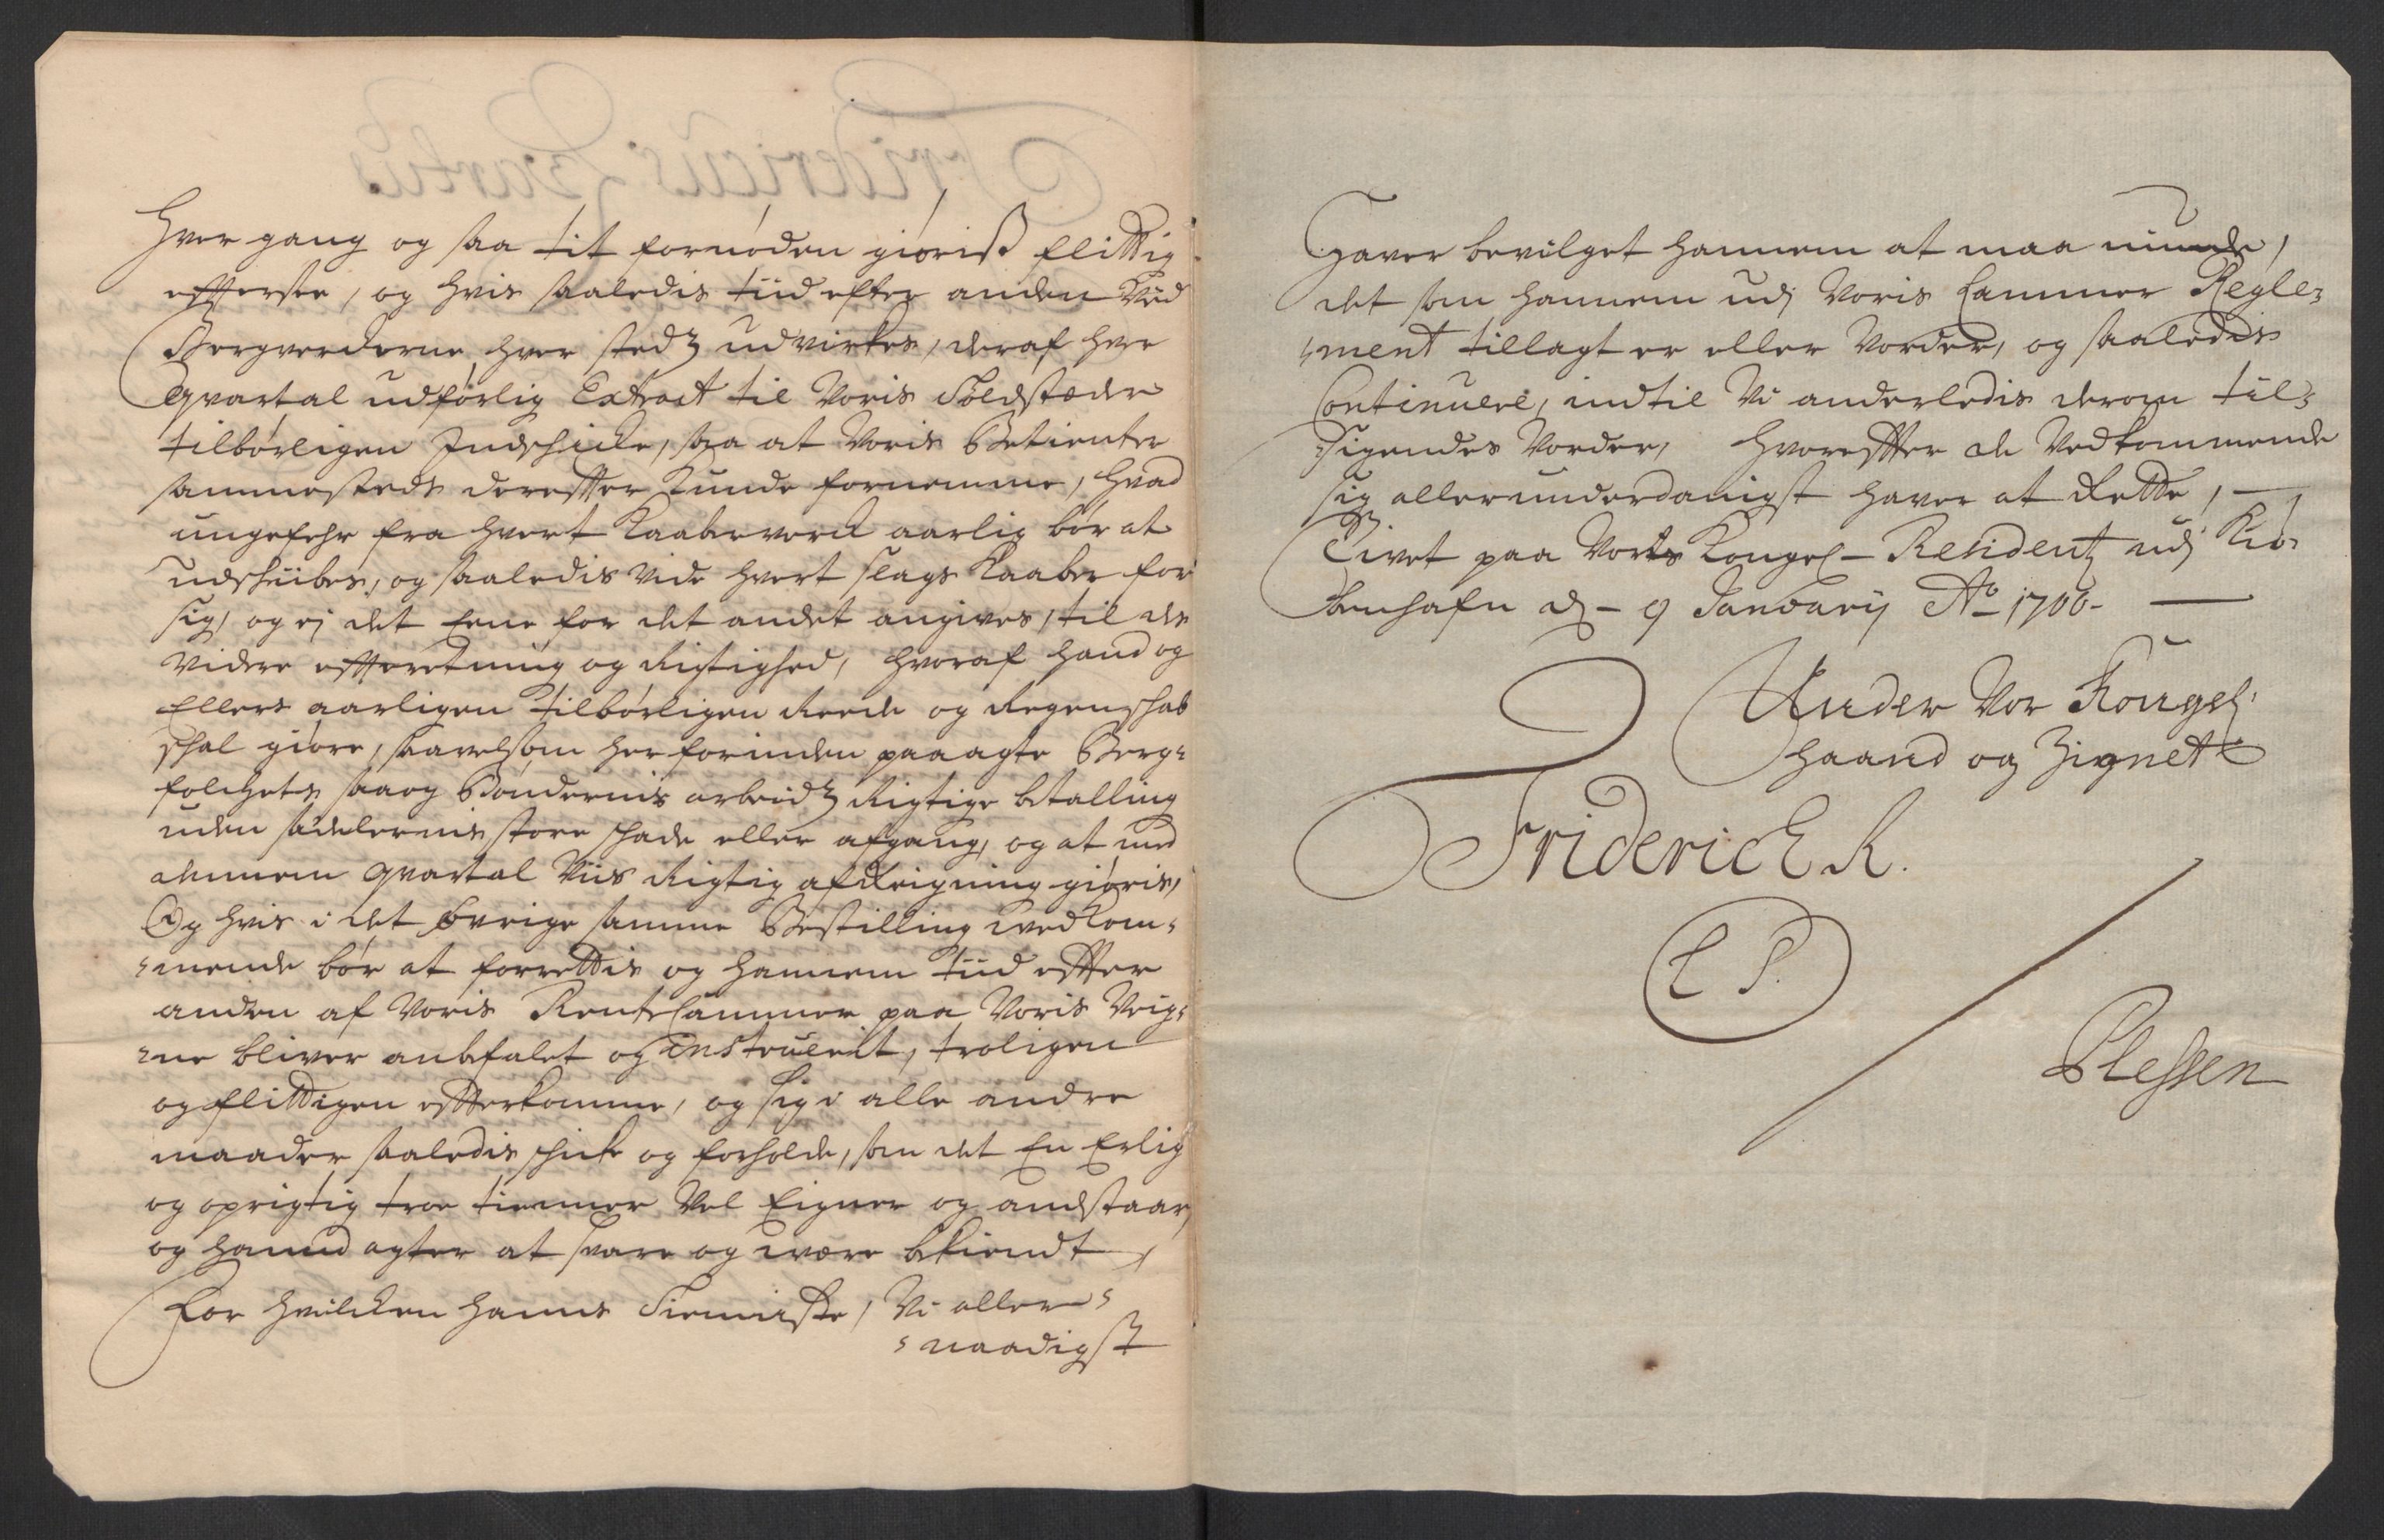 hver gang og saa tit fornøden giøriß flittig
effterser, og hvis saaledis tiid efter anden ved
Bergverckerne hver stedz udvirkes, deraf hver
qvartal udførlig Extract til Voris Toldstæder
tilbørligen Indschicke, saa at Voris Betienter
sammesteds dereffter kunde fornemme, hvad
ungefehr fra hvert Kaaberverck aarlig bør at
udschibes, og saaledis vide hvert slags Kaaber for
sig, og ej det Eene for det andet angives, til des
videre effterretning og Rigtighed, hvoraf hand og
Ellers aarligen tilbørligen Reede og Regenschab
schal giøre, saavelsom her forinden paaagte Berg-
folchets saaog Bøndernis arbeidz Rigtige betalling
uden sædelernis store schade eller afgang, og at med
dennem qvartal Viis Rigtig afReigning giøris,
Og hvis i det øvrige samme Bestilling vedkom-
-mende bør at forrettis og hannem tiid effter
anden af Voris RenteCammer paa Voris Veig-
-ne bliver anbefalet og instruerit, troligen
og flittigen effterkomme, og sig i alle andre
maader saaledis schicke og forholde, som det En Erlig
og oprigtig troe tienner Vel Eigner og andstaar,
og hannd agter at svare og være bekiendt,
For hvilcken hanns Tienniste, Vi aller-
-naadigst
Haver bevilget hannem at maa niude,
det som hannem udj Voris Cammer Regle-
-ment tillagt er eller Vorder, og saaledis
Continuere, indtil Vi anderledis derom til-
-sigendes Vorder, hvoreffter de Vedkommende
sig allerunderdanigst haver at Rette,
Givet paa Vorts Kongel- Residentz udj Kiø-
benhafn d- 9 Januarij Ao 1706-
Under Vor Kongel:
haand og Zignet
Friderich R.
L S.
Plessen